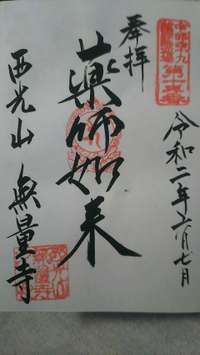 奉拝
令和二年六月七日
薬師如来
西光山 無量寺